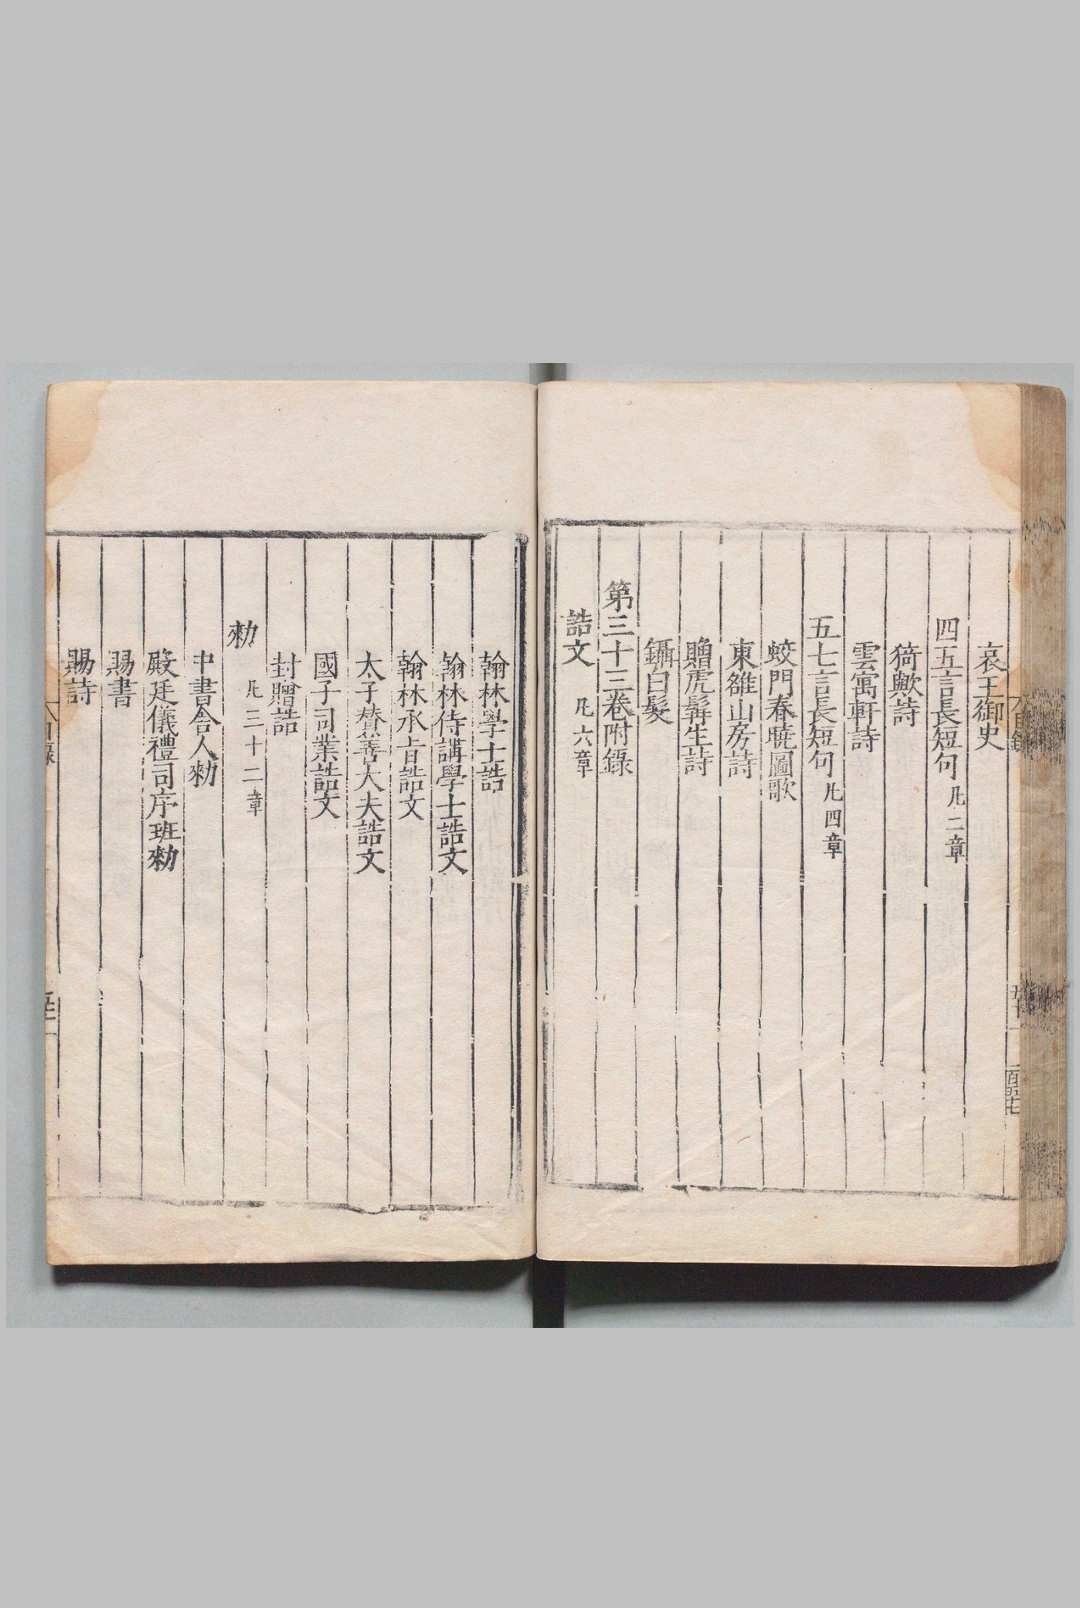 哀王御史
四五言長短句 凡二章
猗歟詩
雲寓軒詩
五七言長短句 凡四章
蛟門春曉圖歌
東雒山房詩
贈虎髯生詩
鑷白髮
第三十三卷附錄
誥文 凡六章
翰林學士誥
翰林侍講學士誥文
翰林承旨誥文
太子贊善大夫誥文
國子司業誥文
封贈誥
勑 凡三十二章
中書舍人勑
殿廷儀禮司序班勑
賜書
賜詩